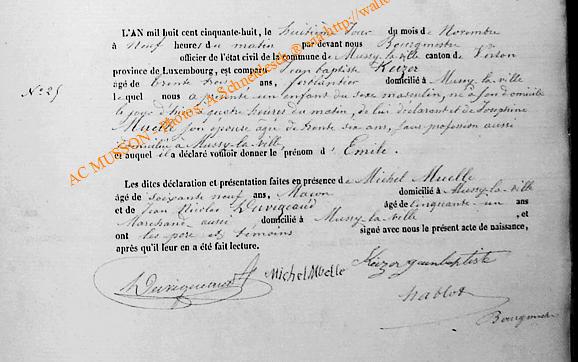 L'AN mil huit cent cinquante-huit, le huitième jour du mois de Novembre
à Neuf heures du matin par devant nous Bourgmestre
officier de l'état civil de la commune de Mussy-la-ville canton de Virton
province de Luxembourg, est comparu Jean baptiste Keizer
âgé de trente ans, ferblantier domicilié à Mussy-la-ville
N° 25
lequel nous a présenté un enfant du sexe masculin, né à son domicile
le jour d'hier à quatre heures du matin, de lui déclarant et de Josephine
Muelle son épouse agée de trente six ans, sans profession aussi
domiciliée à Mussy-la-ville,
et auquel il a déclaré vouloir donner le prénom d'Emile.
Les dites déclaration et présentation faites en présence de Michel Muelle
âgé de soixante neuf ans, Maçon domicilié à Mussy-la-ville
et de Jean Nicolas âgé de cinquante un ans
Marchand aussi domicilié à Mussy-la-ville, et
ont les père et témoins signé avec nous le présent acte de naissance,
après qu'il leur en a été fait lecture.
Michel Muelle
Keizer jeanbaptiste
Hablot
Bourgmestre
AC MUSSON - Photos: A.Schneidesch @ http://www.